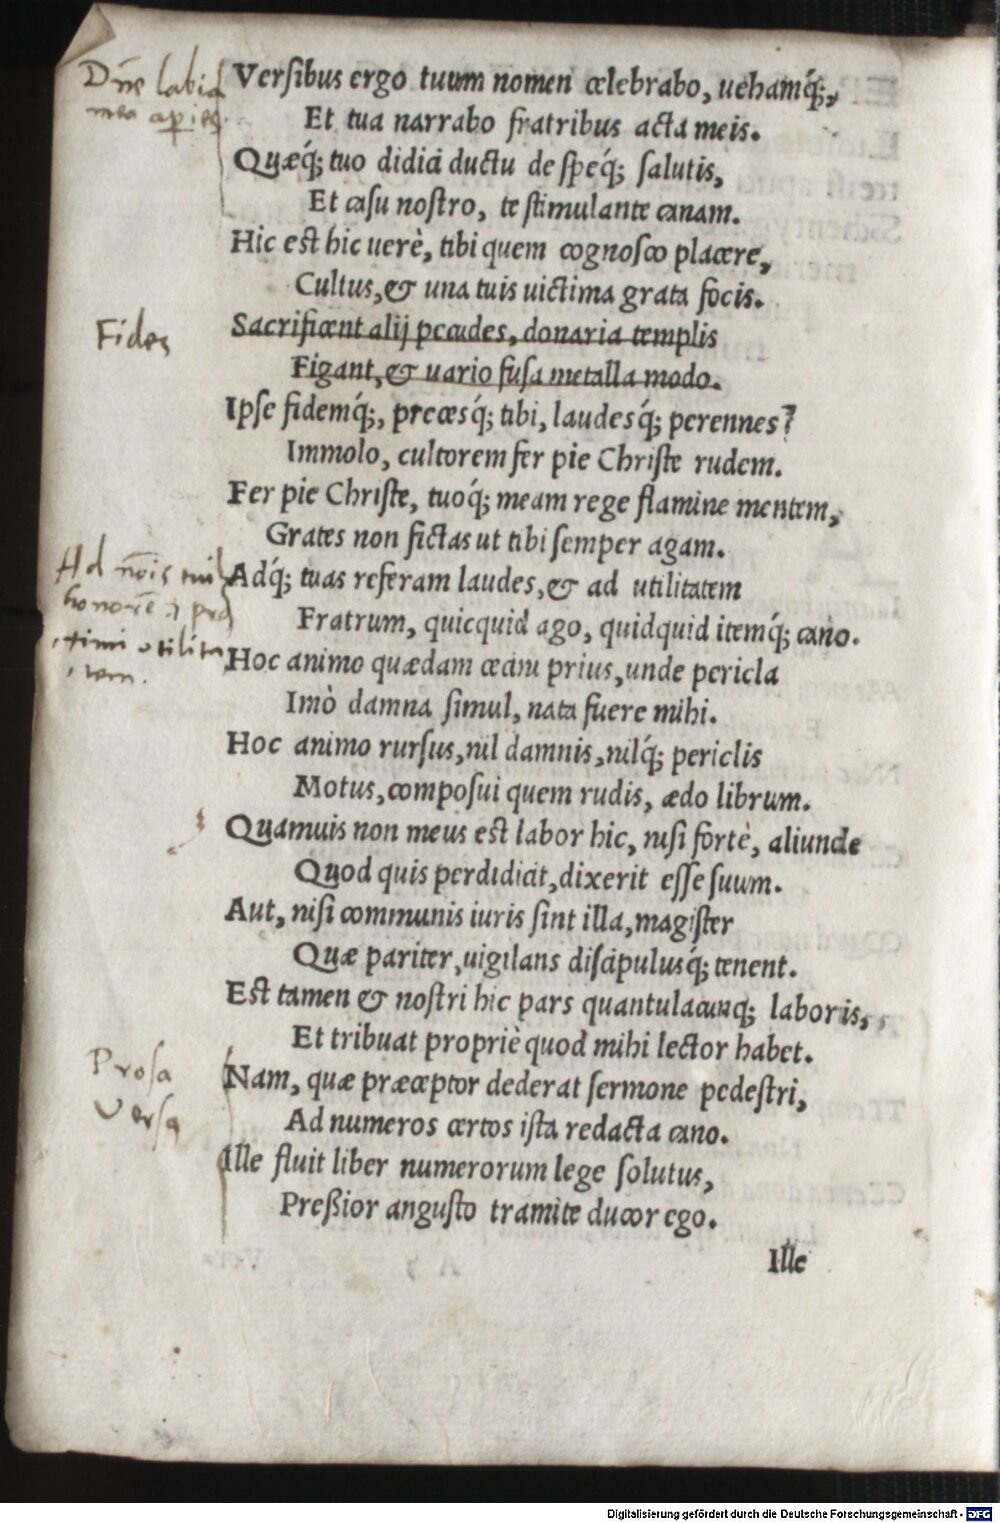 Dn̄e labia
mea aperies.
Versibus ergo tuum nomen celebrabo, uehamq́;,
Et tua narrabo fratribus acta meis.
Quæq́; tuo didici ductu de speq́; salutis,
Et casu nostro, te stimulante canam.
Hic est hic uerè, tibi quem cognosco placere,
Cultus, & una tuis uictima grata focis.
Fides
Sacrificent alij pecudes, donaria templis
Figant, & uario fusa metalla modo.
Ipse fidemq́;, precesq́; tibi, laudesq́; perennes?
Immolo, cultorem fer pie Christe rudem.
Fer pie Christe, tuoq́; meam rege flamine mentem,
Grates non fictas ut tibi semper agam.
Ad nōis tui
honorē & pro
ximi utilita
tem.
Adq́; tuas referam laudes, & ad utilitatem
Fratrum, quicquid ago, quidquid itemq́; cano.
Hoc animo quædam cecini prius, unde pericla
Imò damna simul, nata fuere mihi.
Hoc animo rursus, nil damnis, nilq́; periclis
Motus, composui quem rudis, ædo librum.
Quamuis non meus est labor hic, nisi fortè, aliunde
Quod quis perdidicit, dixerit esse suum.
Aut, nisi communis iuris sint illa, magister
Quæ pariter, uigilans discipulusq́; tenent.
Est tamen & nostri hic pars quantulacunq; laboris,
Et tribuat propriè quod mihi lector habet.
Prosa
Versa
Nam, quæ præceptor dederat sermone pedestri,
Ad numeros certos ista redacta cano.
Ille fluit liber numerorum lege solutus,
Preßior angusto tramite ducor ego.
Ille
Digitalisierung gefördert durch die Deutsche Forschungsgemeinschaft - DFG